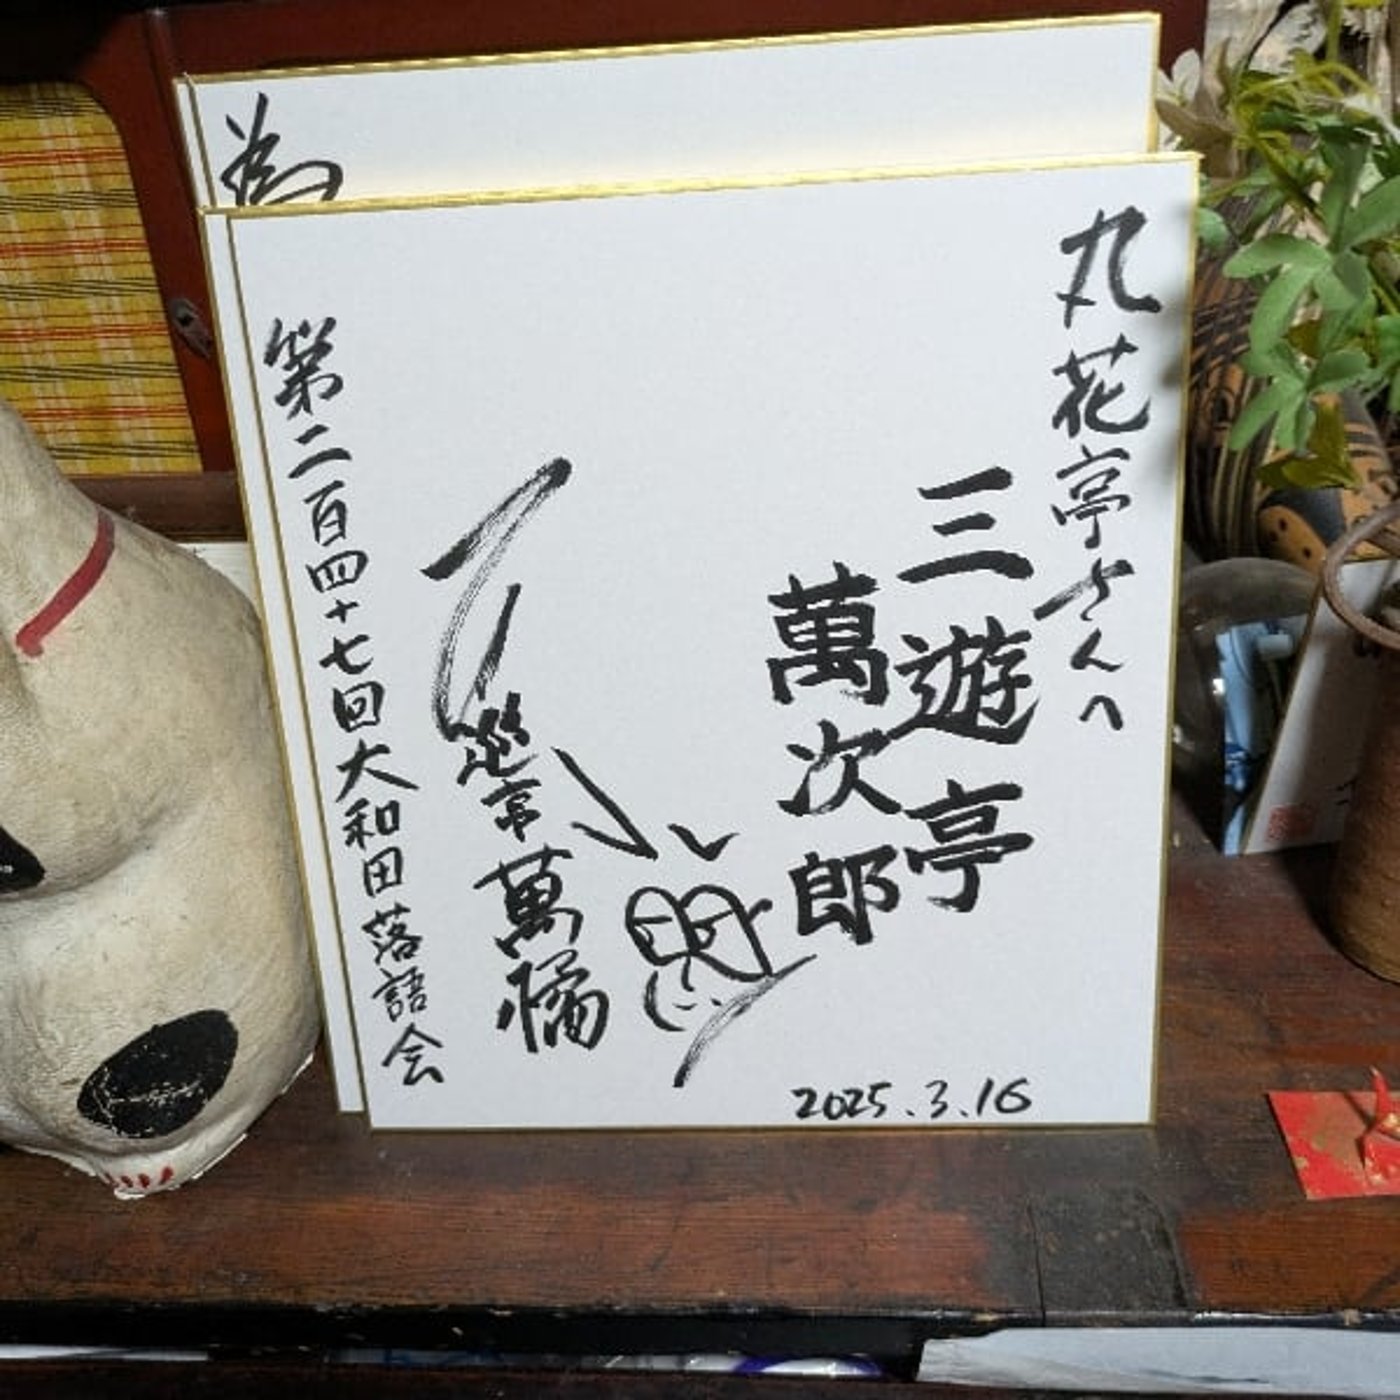 為
丸花亭さんへ
三遊亭
萬次郎
三遊亭萬橘
第二百四十七回大和田落語会
2025.3.16